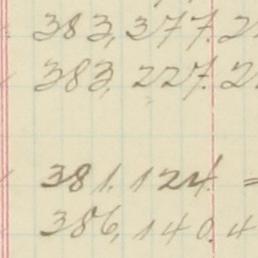 383,377.2
383,227.2
381.124. =
386,140.4